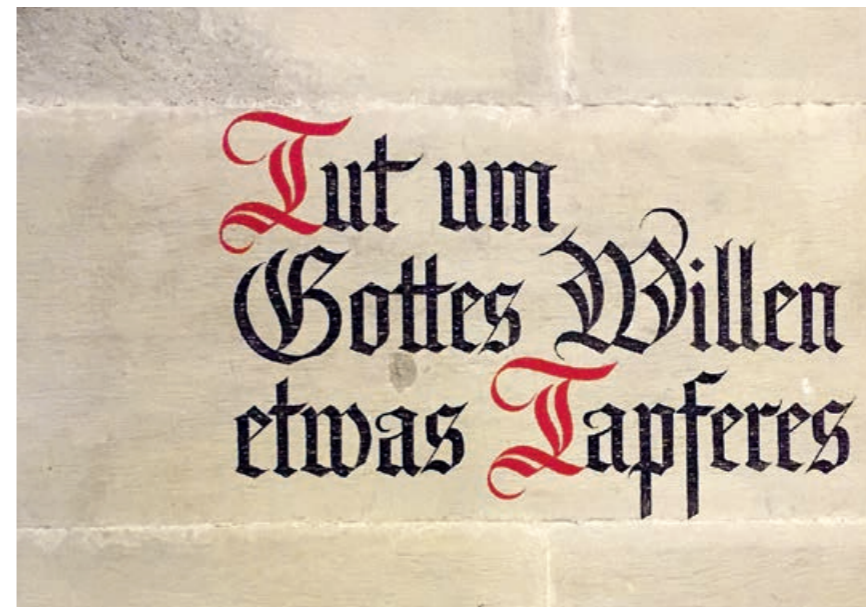 Tut um
Gottes Willen
etwas Tapferes